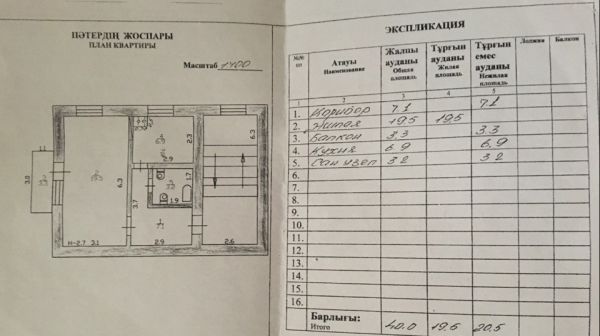 ПӘТЕРДІҢ ЖОСПАРЫ
ПЛАН КВАРТИРЫ
Масштаб 1:100
1.1
3.0
6.3
н-2.7 3.1
2.3
2.9
3.7
1.9
2.9
6.3
2.6
ЭКСПЛИКАЦИЯ
№№ пп Атауы Наименование Жалпы ауданы Общая площадь Тұрғын ауданы Жилая площадь Тұрғын емес ауданы Нежилая площадь Лоджия Балкон
1 2 3 4 5
1. Коридор 7.1 7.1
2. Жилая 19.5 19.5
3. Балкон 3.3 3.3
4. Кухня 6.9 6.9
5. Сан узел 3.2 3.2
6.
7.
8.
9.
10.
11.
12.
13.
14.
15.
16.
Барлығы:
Итого 40.0 19.5 20.5